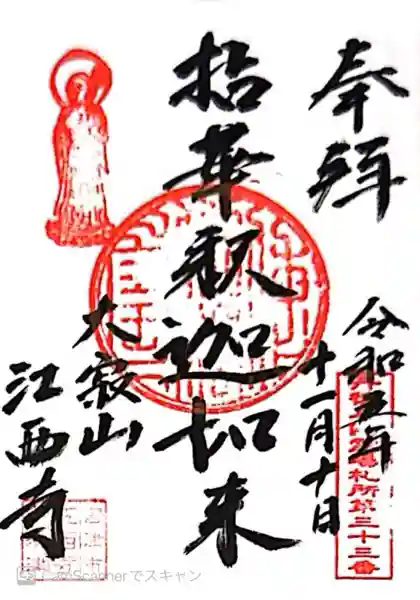 奉拝
令和五年
十一月十日
拈華釈迦如来
大寂山
江西寺
札所第三十三番
CamScannerでスキャン